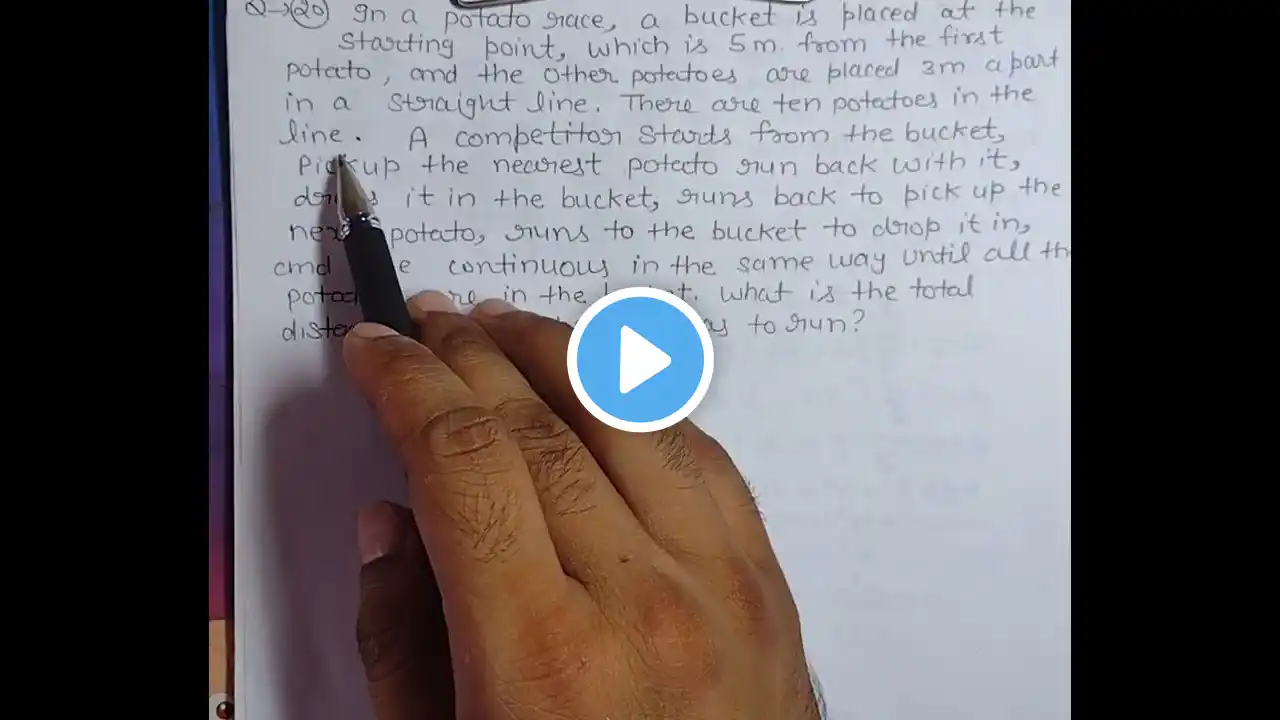 Q→20 In a potato race, a bucket is placed at the
starting point, which is 5m. from the first
potato, and the other potatoes are placed 3m apart
in a straight line. There are ten potatoes in the
line. A competitor starts from the bucket,
Pick up the nearest potato run back with it,
it in the bucket, runs back to pick up the
potato, runs to the bucket to drop it in,
and continuous in the same way until all the
in the what is the total
to run?